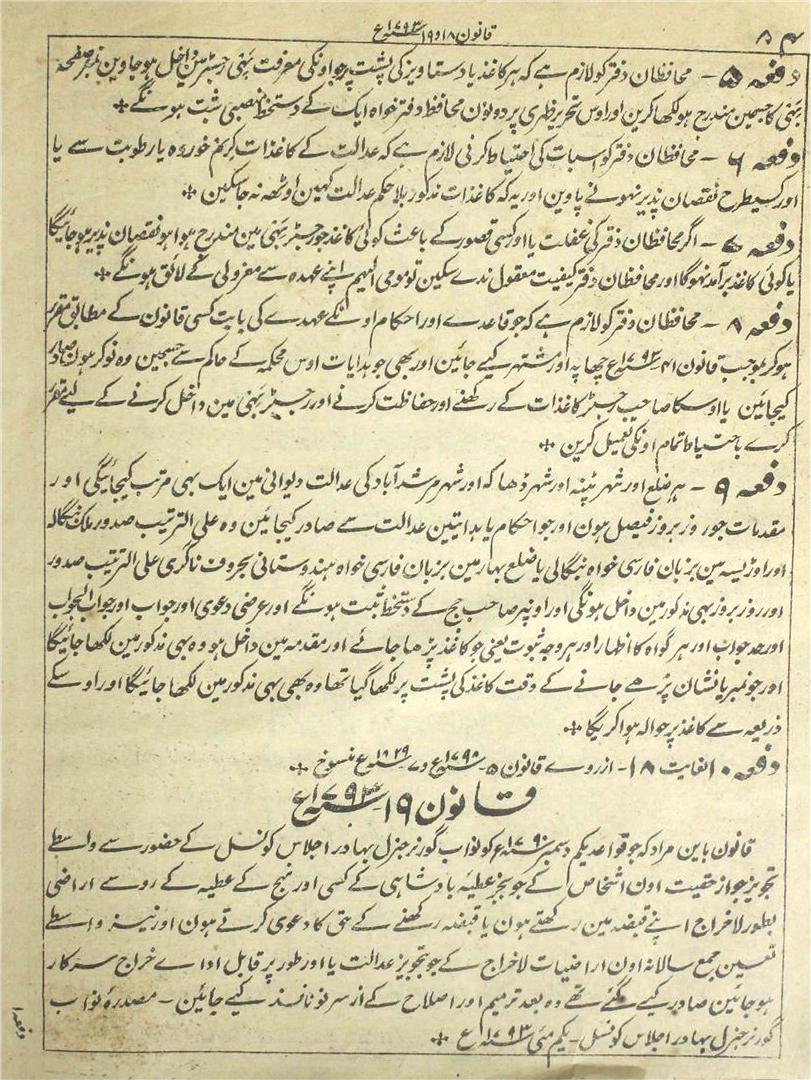 قانون ۱۸ و ۱۹ سنہ ۱۷۹۳ع
دفعہ ۵ - محافظان دفتر کو لازم ہے کہ ہر کاغذ یا دستاویز کی پشت پر جو اونکی معرفت بہی رجسٹر مین داخل ہو جاوین نمبر صفحہ
بہی کا جسمین مندرج ہو لکھا کرین اور اوس تحریر ظہری پر دونون محافظ دفتر خواہ ایک کے دستخط نصبی ثبت ہونگے ٭
دفعہ ۶ - محافظان دفتر کو اسبات کی احتیاط کرنی لازم ہے کہ عدالت کے کاغذات کرم خوردہ یا رطوبت سے یا
اور کسیطرح نقصان پذیر نہونے پاوین اور یہ کہ کاغذات مذکور بلا حکم عدالت کہین اوٹھہ نہ جا سکین ٭
دفعہ ۷ - اگر محافظان دفتر کی غفلت یا اور کسی قصور کے باعث کوئی کاغذ جو رجسٹر بہی مین مندرج ہوا ہو نقصان پذیر ہو جائیگا
یا کوئی کاغذ برآمد نہوگا اور محافظان دفتر کیفیت معقول ندے سکین تو مومی الیہم اپنے عہدہ سے معزولی کے لائق ہونگے ٭
دفعہ ۸ - محافظان دفتر کو لازم ہے کہ جو قاعدے اور احکام اونکے عہدے کی بابت کسی قانون کے مطابق مقرر
ہو کر بموجب قانون ۴۱ سنہ ۱۷۹۳ع چھاپہ اور مشتہر کیے جائین اور بھی جو ہدایات اوس محکمہ کے حاکم سے جسمین وہ نوکر ہون صادر
کیجائین یا اوسکا صاحب رجسٹر کاغذات کے رکھنے اور حفاظت کرنے اور رجسٹر بہی مین داخل کرنے کے لیئے مقرر
کرے باحتیاط تمام اونکی تعمیل کرین ٭
دفعہ ۹ - ہر ضلع اور شہر پٹنہ اور شہر ڈھاکہ اور شہر مرشدآباد کی عدالت دیوانی مین ایک بہی مرتب کیجائیگی اور
مقدمات جو روز بروز فیصل ہون اور جو احکام یا ہدایتین عدالت سے صادر کیجائین وہ علی الترتیب صدور ملک بنگالہ
اور اوڑیسہ مین بزبان فارسی خواہ بنگالی یا ضلع بہار مین بزبان فارسی خواہ ہندوستانی بحروف ناگری علی الترتیب صدور
اور روز بروز بہی مذکور مین داخل ہونگی اور اونپر صاحب جج کے دستخط ثبت ہونگے اور عرضی دعوی اور جواب اور جواب الجواب
اور رد جواب اور ہر گواہ کا اظہار اور ہر وجہ ثبوت یعنی جو کاغذ پڑھا جائے اور مقدمہ مین داخل ہو وہ بہی مذکور مین لکھا جائیگا
اور جو نمبر یا نشان پڑھے جانے کے وقت کاغذ کی پشت پر لکھا گیا تھا وہ بھی بہی مذکور مین لکھا جائیگا اور اوسکے
ذریعہ سے کاغذ پر حوالہ ہوا کریگا ٭
دفعہ ۱۰ لغایت ۱۸ - از روے قانون ۵ سنہ ۱۷۹۸ع و ۷ سنہ ۱۸۲۹ع منسوخ ٭
قانون ۱۹ سنہ ۱۷۹۳ع
قانون باین مراد کہ جو قواعد یکم دسمبر سنہ ۱۷۹۰ع کو نواب گورنر جنرل بہادر اجلاس کونسل کے حضور سے واسطے
تجویز جواز حقیت اون اشخاص کے جو بجز عطیہ بادشاہی کے کسی اور نہج کے عطیہ کے رو سے اراضی
بطور لاخراج اپنے قبضہ مین رکھتے ہون یا قبضہ رکھنے کے حق کا دعوی کرتے ہون اور نیز واسطے
تعیین جمع سالانہ اون اراضیات لاخراج کے جو بتجویز عدالت یا اور طور پر قابل اداے خراج سرکار
ہو جائین صادر کیے گئے تھے وہ بعد ترمیم اور اصلاح کے از سر نو نافذ کیے جائین - مصدرۂ نواب
گورنر جنرل بہادر اجلاس کونسل - یکم مئی سنہ ۱۷۹۳ع ٭
دفعہ ۱